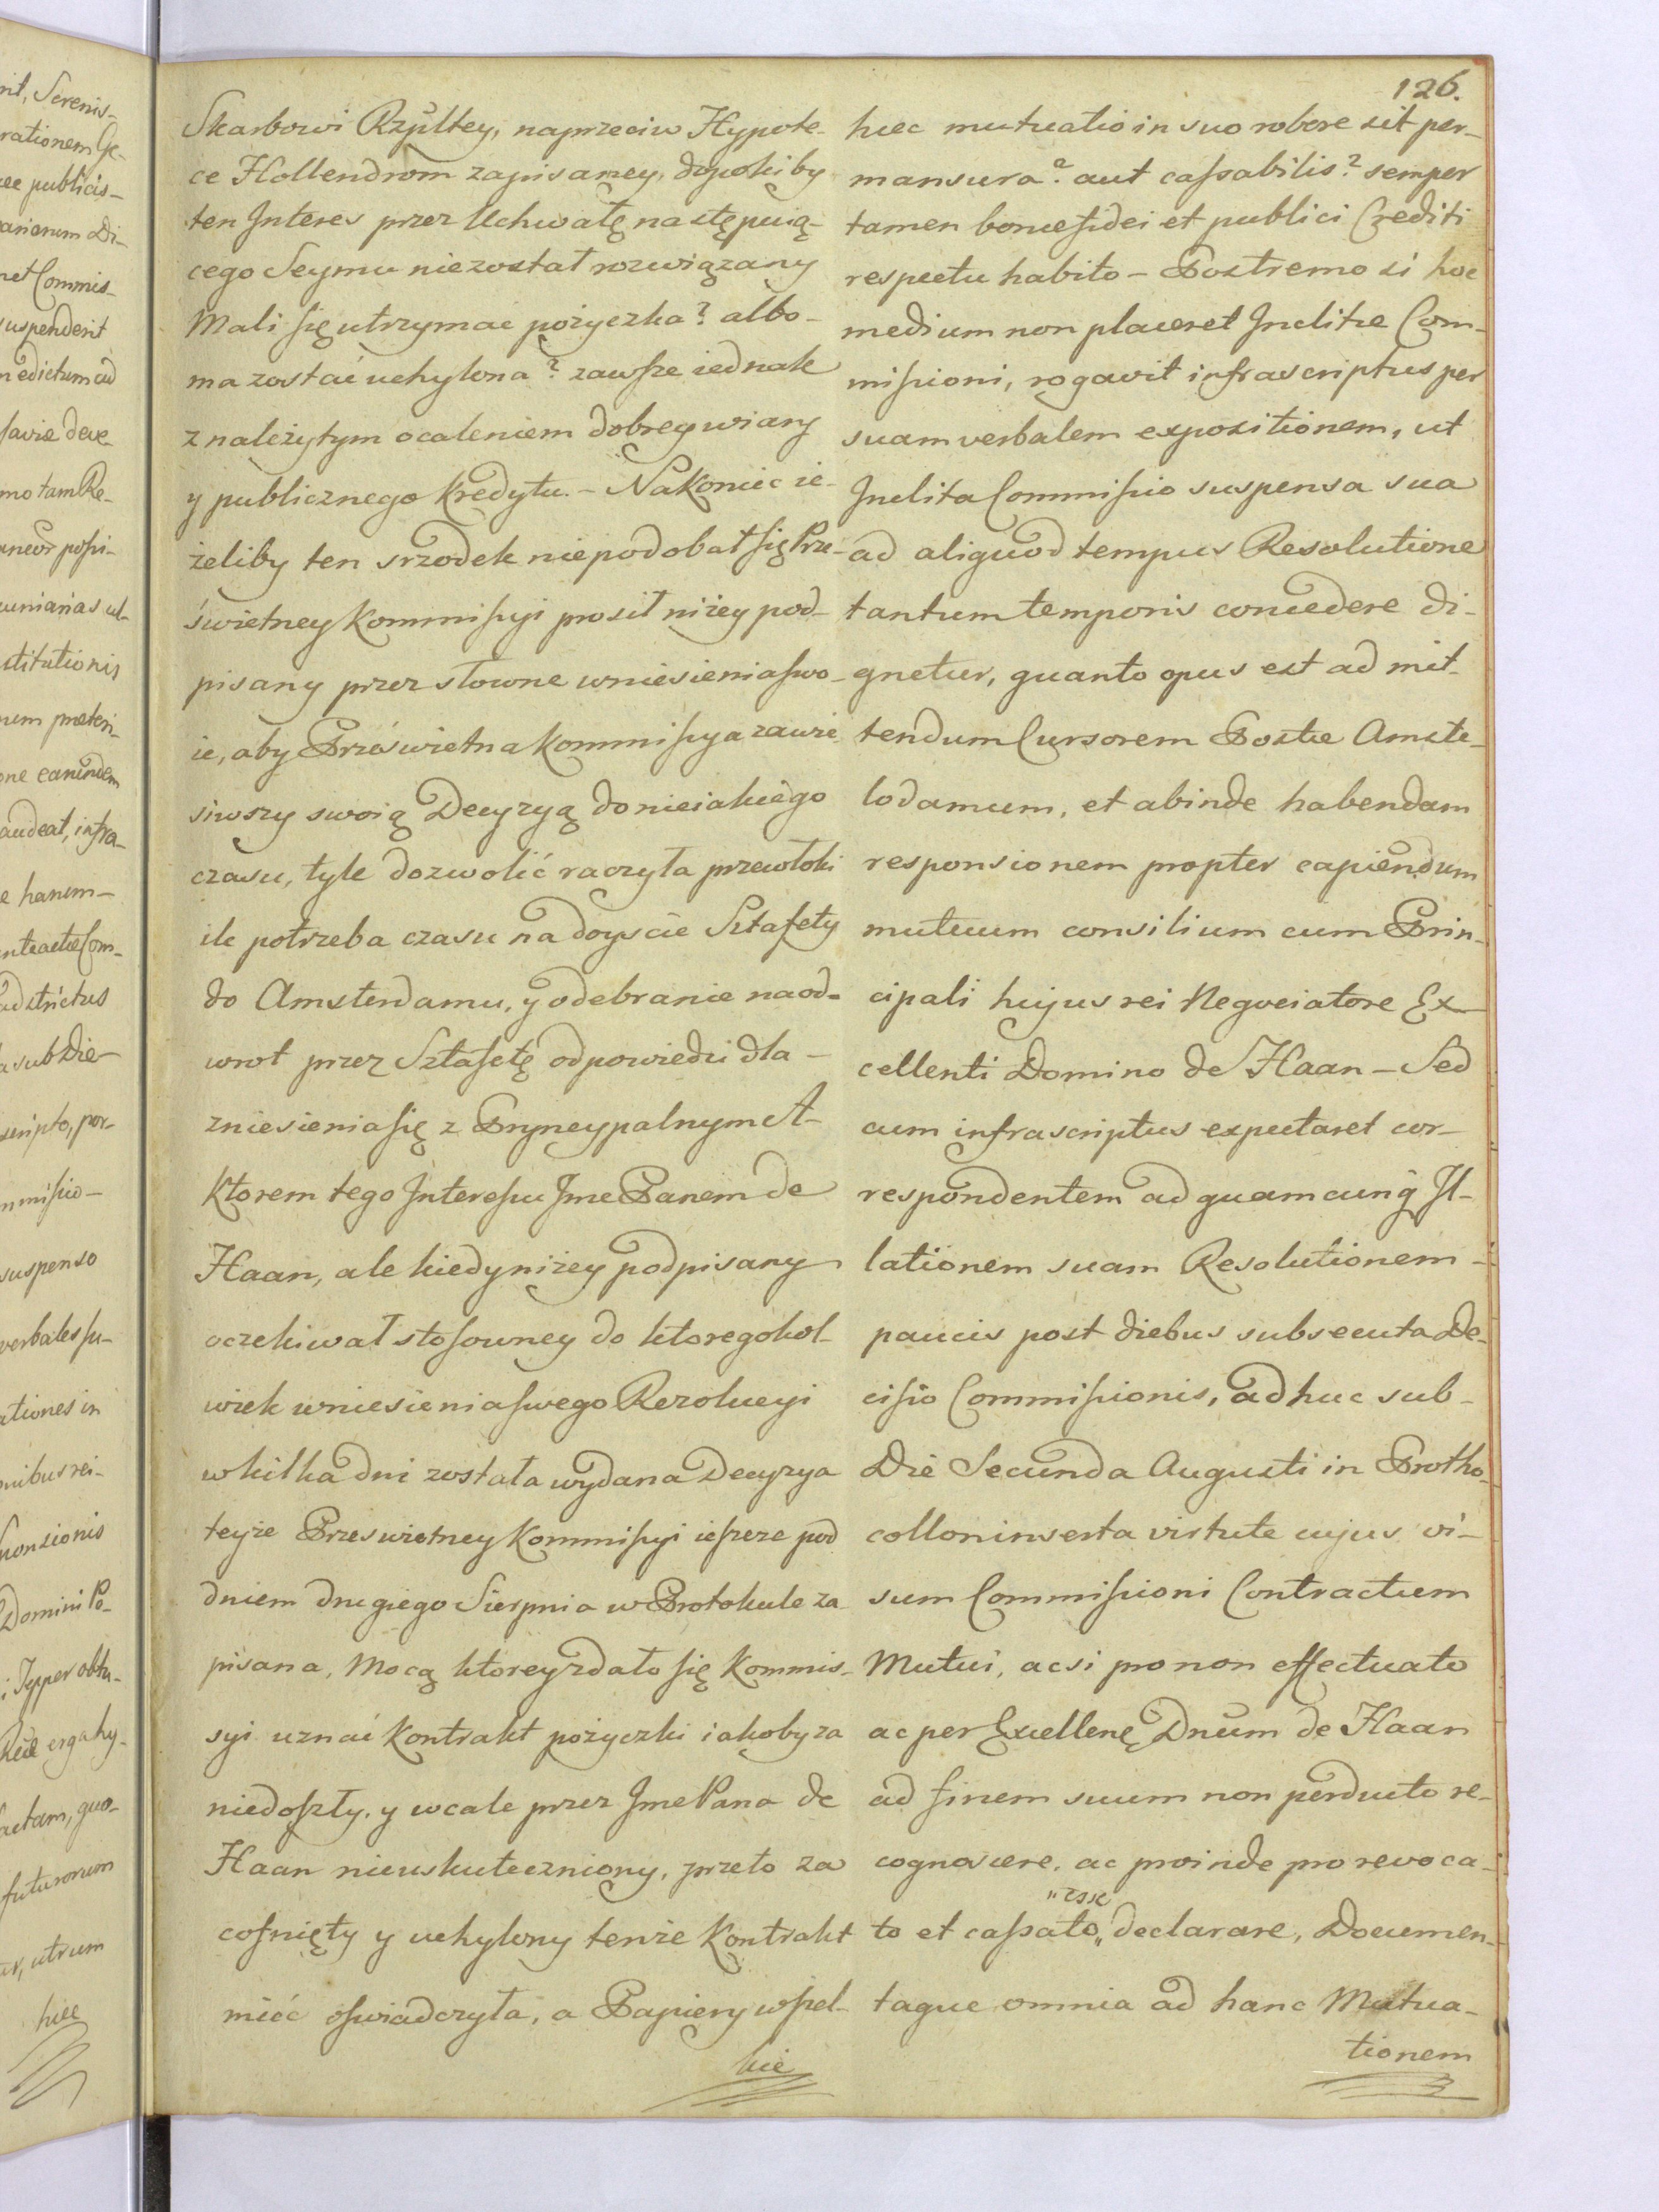 126.
Skarbowi Rzpltey, naprzeciw Hypote-
ce Hollendrom zapisaney, dopokiby
ten Interes przez Uchwałę następuią-
cego Seymu niezostał rozwiązany
Mali się utrzymać pożyczka? albo-
ma zostać uchylona? zawsze iednak
z należytym ocaleniem dobrey wiary
y publicznego kredytu. - Nakoniec ie-
żeliby ten srzodek niepodobał się Prze-
świetney Kommissyi prosił niżey pod-
pisany przez słowne wniesienia swo-
ie, aby Prześwietna Kommissya zawie
siwszy swoią Decyzyą do nieiakiego
czasu, tyle dozwolić raczyła przewłoki
ile potrzeba czasu na doyscie Sztafety
do Amsterdamu, y odebranie naod-
wrot przez Sztafetę odpowiedzi dla -
zniesienia się z Pryncypalnym A-
ktorem tego Interessu Jme Panem de
Haan, ale kiedy niżey podpisany
oczekiwał stosowney do ktoregokol-
wiek wniesienia swego Rezolucyi
w kilka dni została wydana Decyzya
teyże Prześwietney Kommissyi ieszcze pod
dniem drugiego Sierpnia w Protokule za
pisana, Mocą ktorey zdało się Kommis-
syi uznać Kontrakt pożyczki iakoby za
niedoszły, y wcale przez Jme Pana de
Haan nieuskuteczniony, przeto za
cofnięty y uchylony tenże Kontrakt
mieć oswiadczyła, a Papiery wszel-
kie
hæc mutuatio in suo robore sit per-
mansura? aut cassabilis? semper
tamen bonæfidei et publici Crediti
respectu habito - Postremo si hoc
medium non placeret Inclitæ Com-
missioni, rogavit infrascriptus per
suam verbalem expositionem, ut
Inclita Commissio suspensa sua
ad aliquod tempus Resolutione
tantum temporis concedere di-
gnetur, quanto opus est ad mit-
tendum Cursorem Postæ Amste-
lodamum, et abinde habendam
responsionem propter capiendum
mutuum consilium cum Prin-
cipali hujus rei Negociatore Ex-
cellenti Domino de Haan - Sed
cum infrascriptus expectaret cor-
respondentem ad quamcunq̃ Il-
lationem suam Resolutionem -
paucis post diebus subsecuta De-
cisio Commissionis, adhuc sub-
Die Secunda Augusti in Protho-
collon inserta virtute cujus vi-
sum Commissioni Contractum
Mutui, acsi pro non effectuato
ac per Excellenę Dnum de Haan
ad finem suum non perducto re-
cognoscere, ac proinde pro revoca-
"esse
to et cassato" declarare, Documen-
taque omnia ad hanc Mutua-
tionem